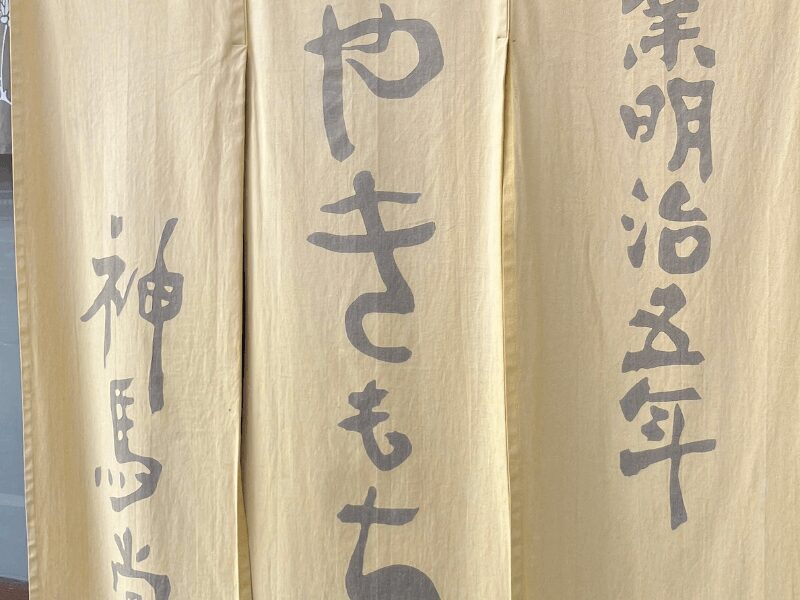 業明治五年
やきもち
神馬堂